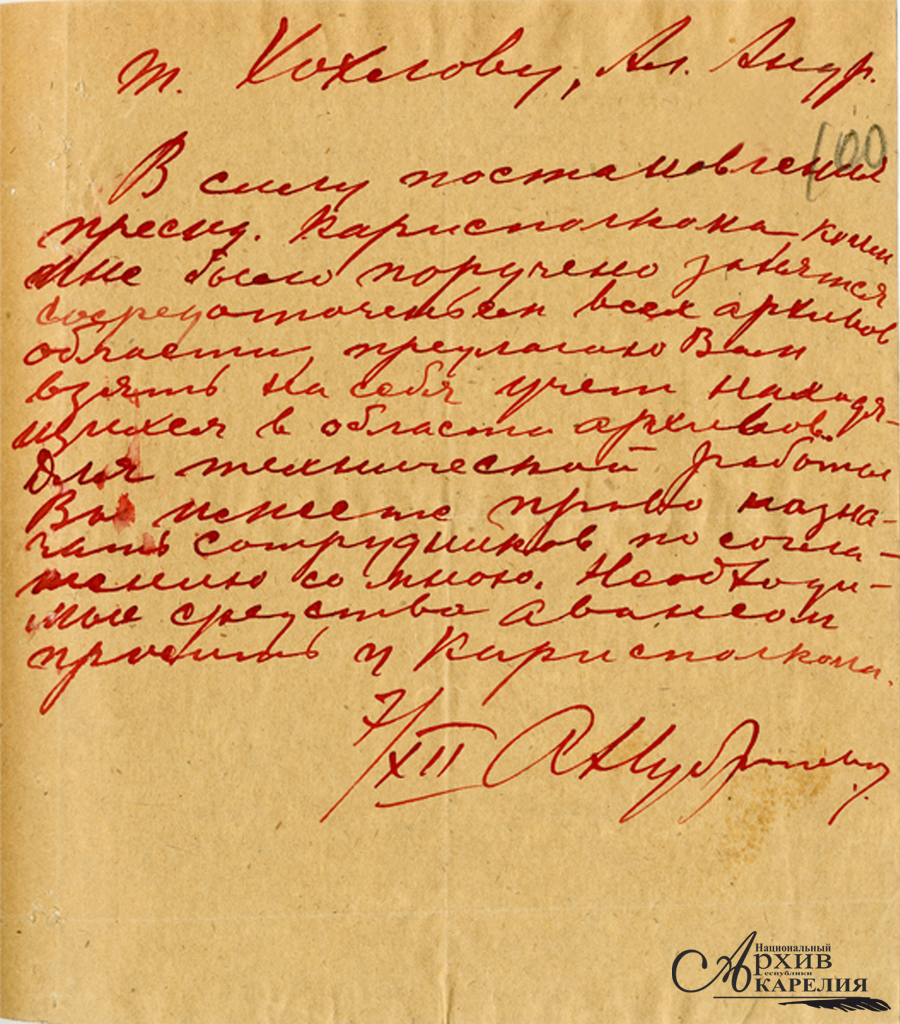 т. Хохлову, Ал. Андр.
100
В силу постановления
презид. Карисполкома коим
мне было поручено заняться
сосредоточеньем всех архивов
области, предлагаю Вам
взять на себя учет находя-
щихся в области архивов.
Для технической работы
Вы имеете право назна-
чать сотрудников по согла-
шению со мною. Необходи-
мые средства авансом
просить у Карисполкома.
7/XII
Национальный
АРХИВ
Республики
КАРЕЛИЯ